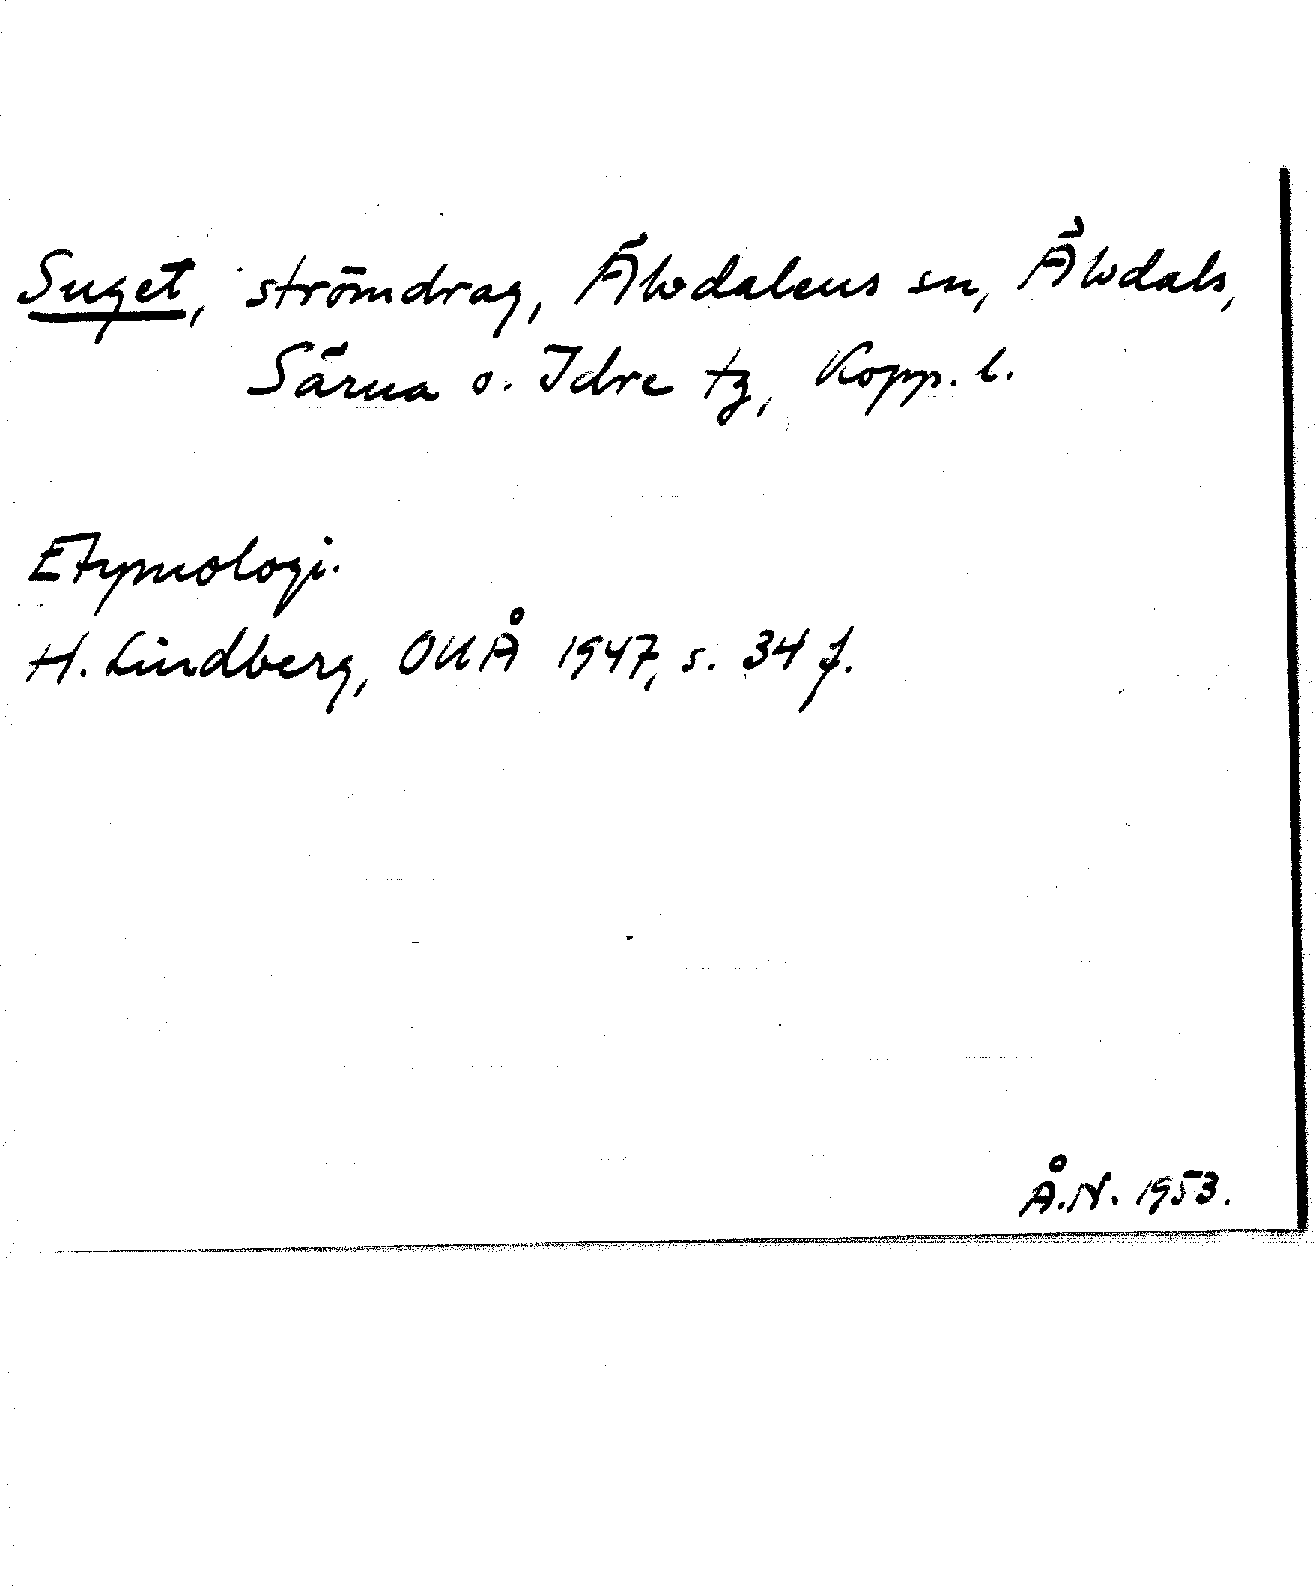 Suget, strömdrag, Älvdalens sn, Älvdals,
Särna o. Idre tg, Kopp. l.
Etymologi.
H. Lindberg, OUÅ 1947, s. 34 f.
Å.N. 1953.